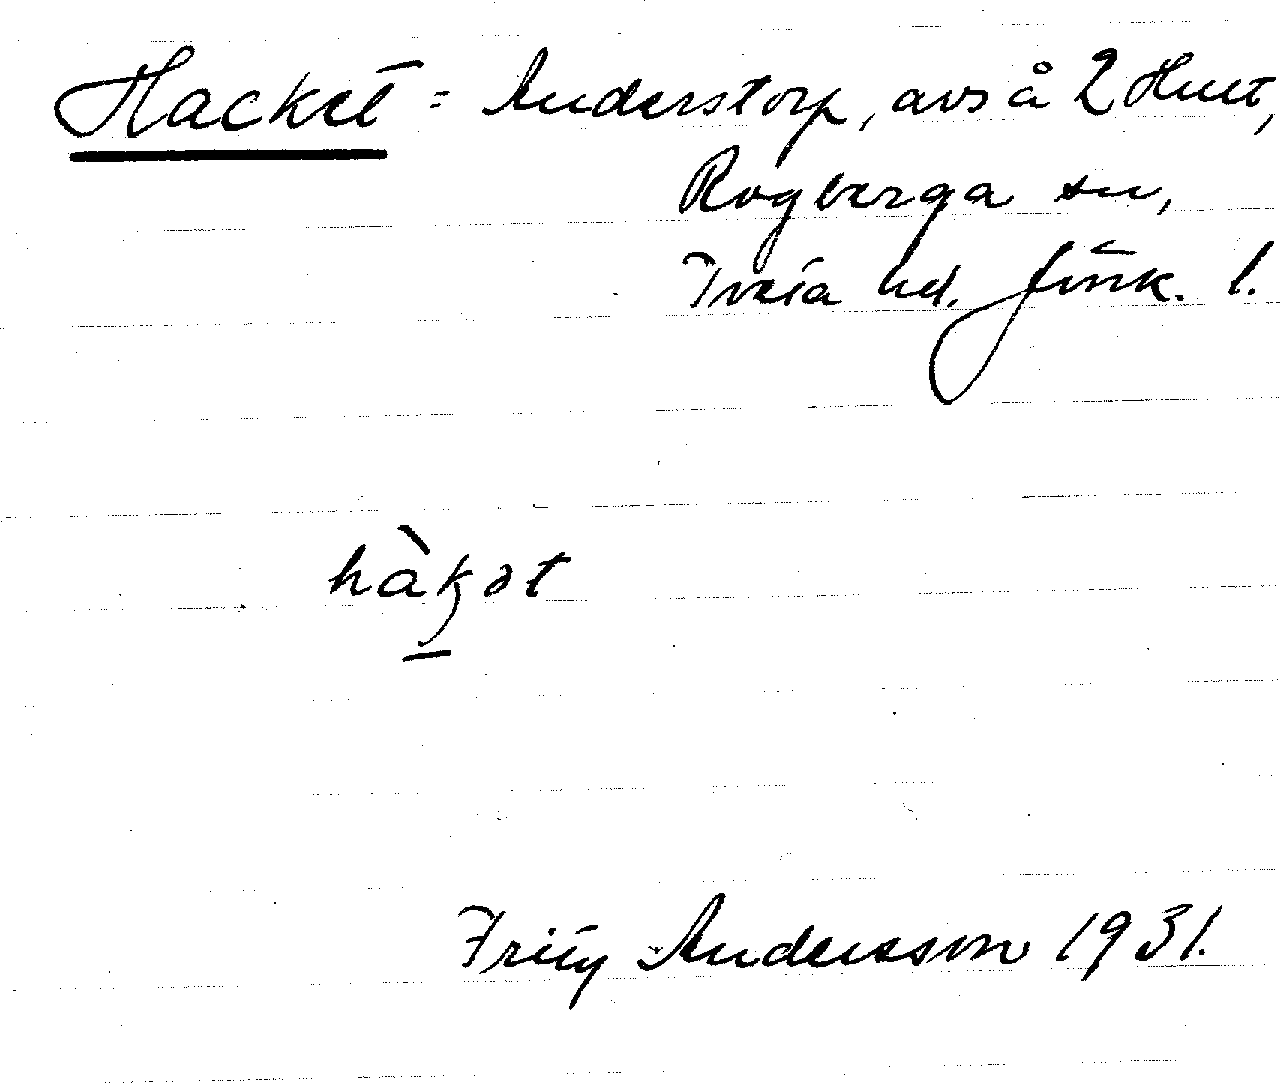 Hacket = Anderstorp, avs å 2 Hult,
Rogberga sn,
Tveta hd. Jönk. l.
hàkət
Fritz Andersson 1931.